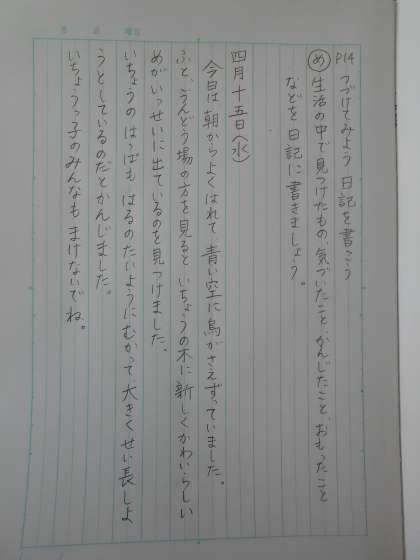 月 日 曜日
P14 つづけてみよう 日記を書こう
め 生活の中で見つけたもの、気づいたこと、かんじたこと、おもったこと
などを日記に書きましょう。
四月十五日(水)
今日は、朝からよくはれて青い空に鳥がさえずっていました。
ふと、うんどう場の方を見ると、いちょうの木に新しくかわいらしい
めがいっせいに出ているのを見つけました。
いちょうのはっぱも、はるのたいようにむかって、大きくせい長しよ
うとしているのだとかんじました。
いちょうっ子のみんなもまけないでね。